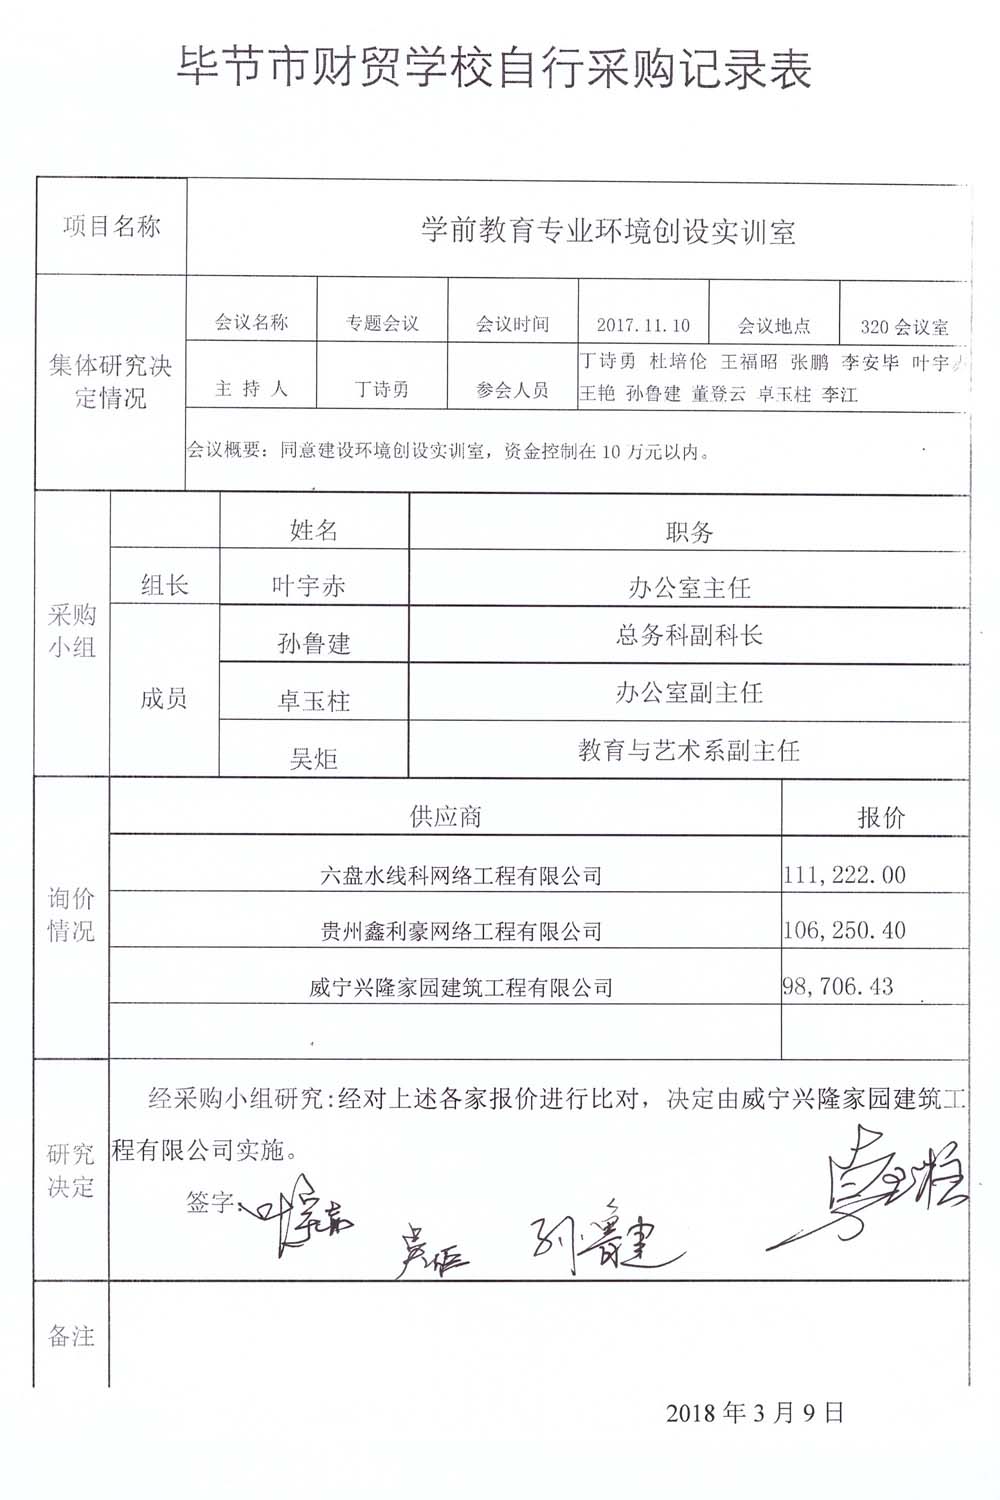 毕节市财贸学校自行采购记录表
项目名称
学前教育专业环境创设实训室
集体研究决
定情况
会议名称
专题会议
会议时间
2017.11.10
会议地点
320会议室
主 持 人
丁诗勇
参会人员
丁诗勇 杜培伦 王福昭 张鹏 李安毕 叶宇赤
王艳 孙鲁建 董登云 卓玉柱 李江
会议概要：同意建设环境创设实训室，资金控制在10万元以内。
采购
小组
姓名
职务
组长
叶宇赤
办公室主任
成员
孙鲁建
总务科副科长
卓玉柱
办公室副主任
吴炬
教育与艺术系副主任
询价
情况
供应商
报价
六盘水线科网络工程有限公司
111,222.00
贵州鑫利豪网络工程有限公司
106,250.40
威宁兴隆家园建筑工程有限公司
98,706.43
研究
决定
经采购小组研究:经对上述各家报价进行比对，决定由威宁兴隆家园建筑工
程有限公司实施。
签字:
叶宇赤
吴炬
孙鲁建
卓玉柱
备注
2018年3月9日